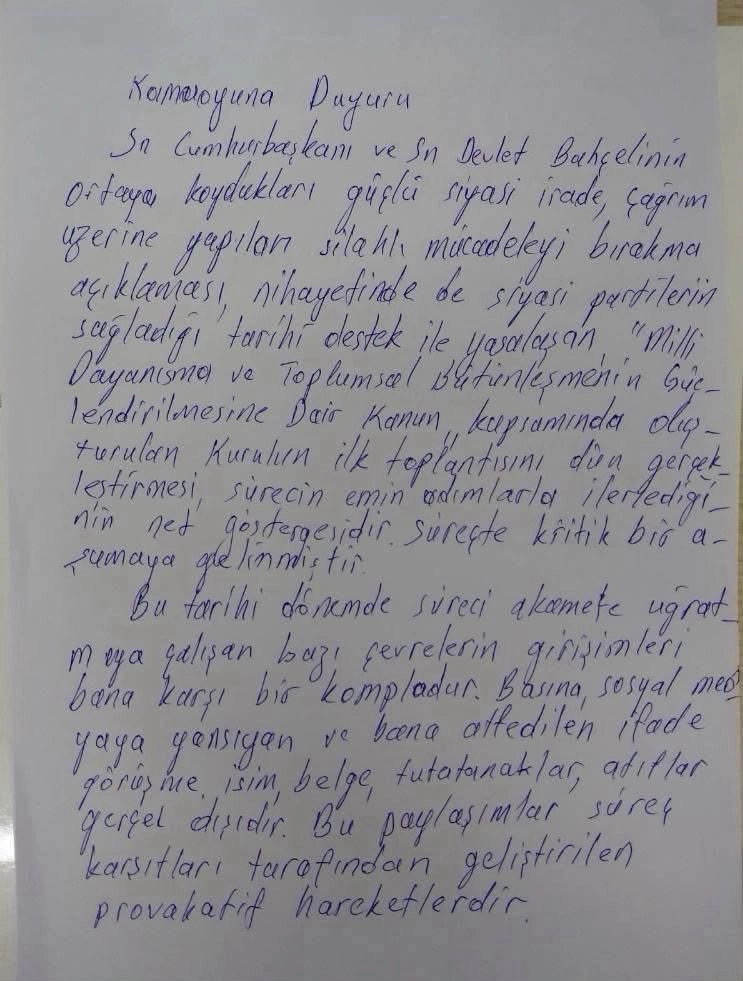 Kamuoyuna Duyuru
Sn Cumhurbaşkanı ve Sn Devlet Bahçelinin
Ortaya koydukları güçlü siyasi irade, çağrım
üzerine yapılan silahlı mücadeleyi bırakma
açıklaması, nihayetinde de siyasi partilerin
sağladığı tarihi destek ile yasalaşan "Milli
Dayanışma ve Toplumsal Bütünleşmenin Güç-
lendirilmesine Dair Kanun" kapsamında oluş-
turulan Kurulun ilk toplantısını dün gerçek-
leştirmesi, sürecin emin adımlarla ilerlediği-
nin net göstergesidir. Süreçte kritik bir a-
şamaya gelinmiştir.
Bu tarihi dönemde süreci akamete uğrat-
maya çalışan bazı çevrelerin girişimleri
bana karşı bir kompladur. Basına, sosyal med-
yaya yansıyan ve bana atfedilen ifade
görüşme, isim, belge, tutatanaklar, atıflar
gerçek dışıdır. Bu paylaşımlar süreç
karşıtları tarafından geliştirilen
provakatif hareketlerdir.